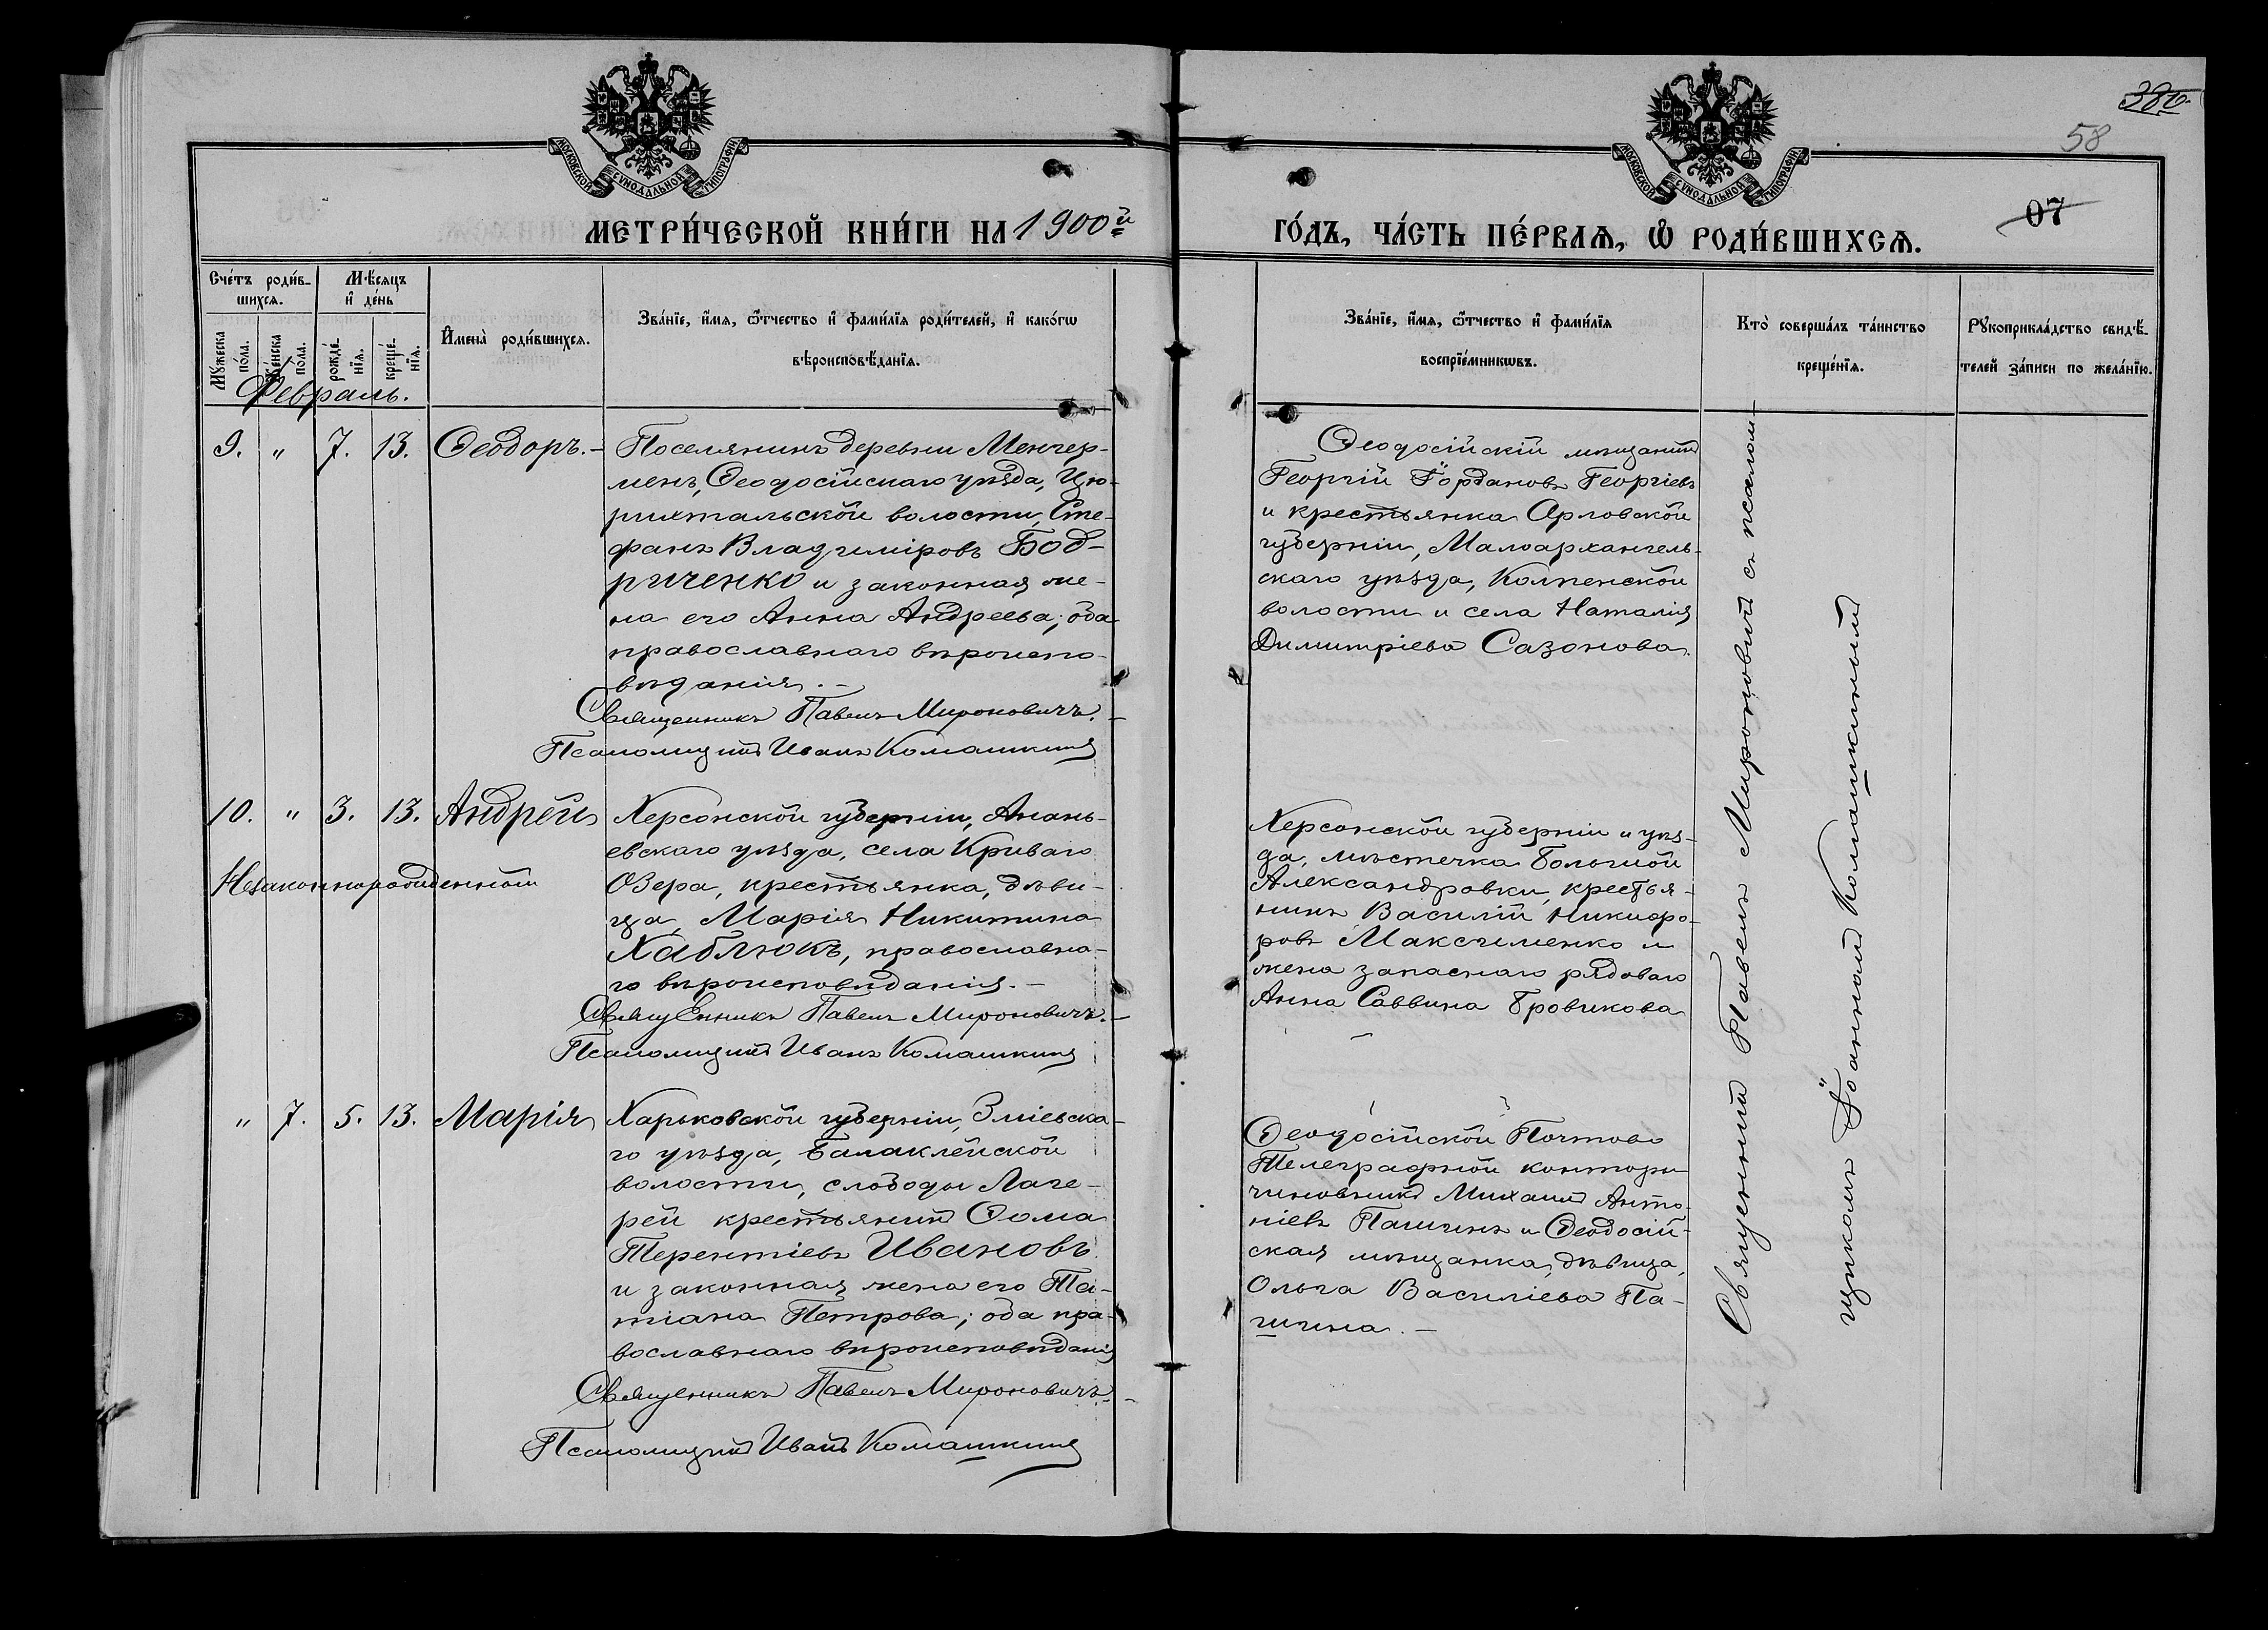 38об.
58
07
МОСКОВСКОЙ СѴНОДАЛЬНОЙ ТИПОГРАФІИ
МОСКОВСКОЙ СѴНОДАЛЬНОЙ ТИПОГРАФІИ
МЕТРИ́ЧЕСКОЙ КНИ́ГИ НА 1900й
ГО́ДЪ, ЧА́СТЬ ПЕ́РВАѦ, Ѽ РОДИ́ВШИХСѦ.
Сче́тъ роди́в-
шихсѧ.
Мѣ́сяцъ
и҆ де́нь
Мꙋжеска
по́ла.
Же́нска
по́ла.
рожде́-
нїѧ.
креще́-
нїѧ.
И҆мена̀ роди́вшихсѧ.
Зва́нїе, и҆́мѧ, ѻ҆́тчество и҆ фами́лїѧ роди́телей, и҆ како́гѡ
вѣроисповѣ́данїѧ.
Зва́нїе, и҆́мѧ, ѻ҆́тчество и҆ фами́лїѧ
воспрїе́мникѡвъ.
Кто̀ соверша́лъ та́инство
креще́нїѧ.
Рꙋкоприкла́дство свидѣ́-
телей за́писи по жела́нїю.
Февраль.
9. " 7. 13. Ѳеодоръ.-
Поселянинъ деревни Менчер-
менъ, Ѳеодосійскаго уѣзда, Цю-
рихтальской волости, Сте-
фанъ Владиміровъ Бод-
риченко и законная же-
на его Анна Андреева; оба
православнаго вѣроиспо-
вѣданія.-
Священникъ Павелъ Мироновичъ.-
Псаломщикъ Иванъ Комашкинъ
Ѳеодосійскій мѣщанинъ
Георгій Іордановъ Георгіевъ
и крестьянка Орловской
губерніи, Малоархангель-
скаго уѣзда, Колпенской
волости и села Наталія
Димитріева Сазонова.
10. " 3. 13. Андрей
Незаконнорожденный
Херсонской губерніи, Анань-
евскаго уѣзда, села Криваго
Озера, крестьянка, дѣви-
ца, Марія Никитина
Хаблюкъ, православна-
го вѣроисповѣданія.-
Священникъ Павелъ Мироновичъ.-
Псаломщикъ Иванъ Комашкинъ
Херсонской губерніи и уѣз-
да, мѣстечка Большой
Александровки, крестья-
нинъ Василій Никифо-
ровъ Максименко и
жена запаснаго рядоваго
Анна Саввина Бровикова
" 7. 5. 13. Марія
Харьковской губерніи, Зміевска-
го уѣзда, Балаклейской
волости, слободы Лаге-
рей крестьянинъ Ѳома
Терентіевъ Ивановъ
и законная жена его Та-
тіана Петрова; оба пра-
вославнаго вѣроисповѣданія
Священникъ Павелъ Мироновичъ.-
Псаломщикъ Иванъ Комашкинъ
Ѳеодосійской Почтово
Телеграфной конторы
чиновникъ Михаилъ Анто-
ніевъ Пашинъ и Ѳеодосій-
ская мѣщанка, дѣвица,
Ольга Василіева Па-
шина.-
Священникъ Павелъ Мироновичъ съ псалом-
щикомъ Іоанномъ Комашкинымъ